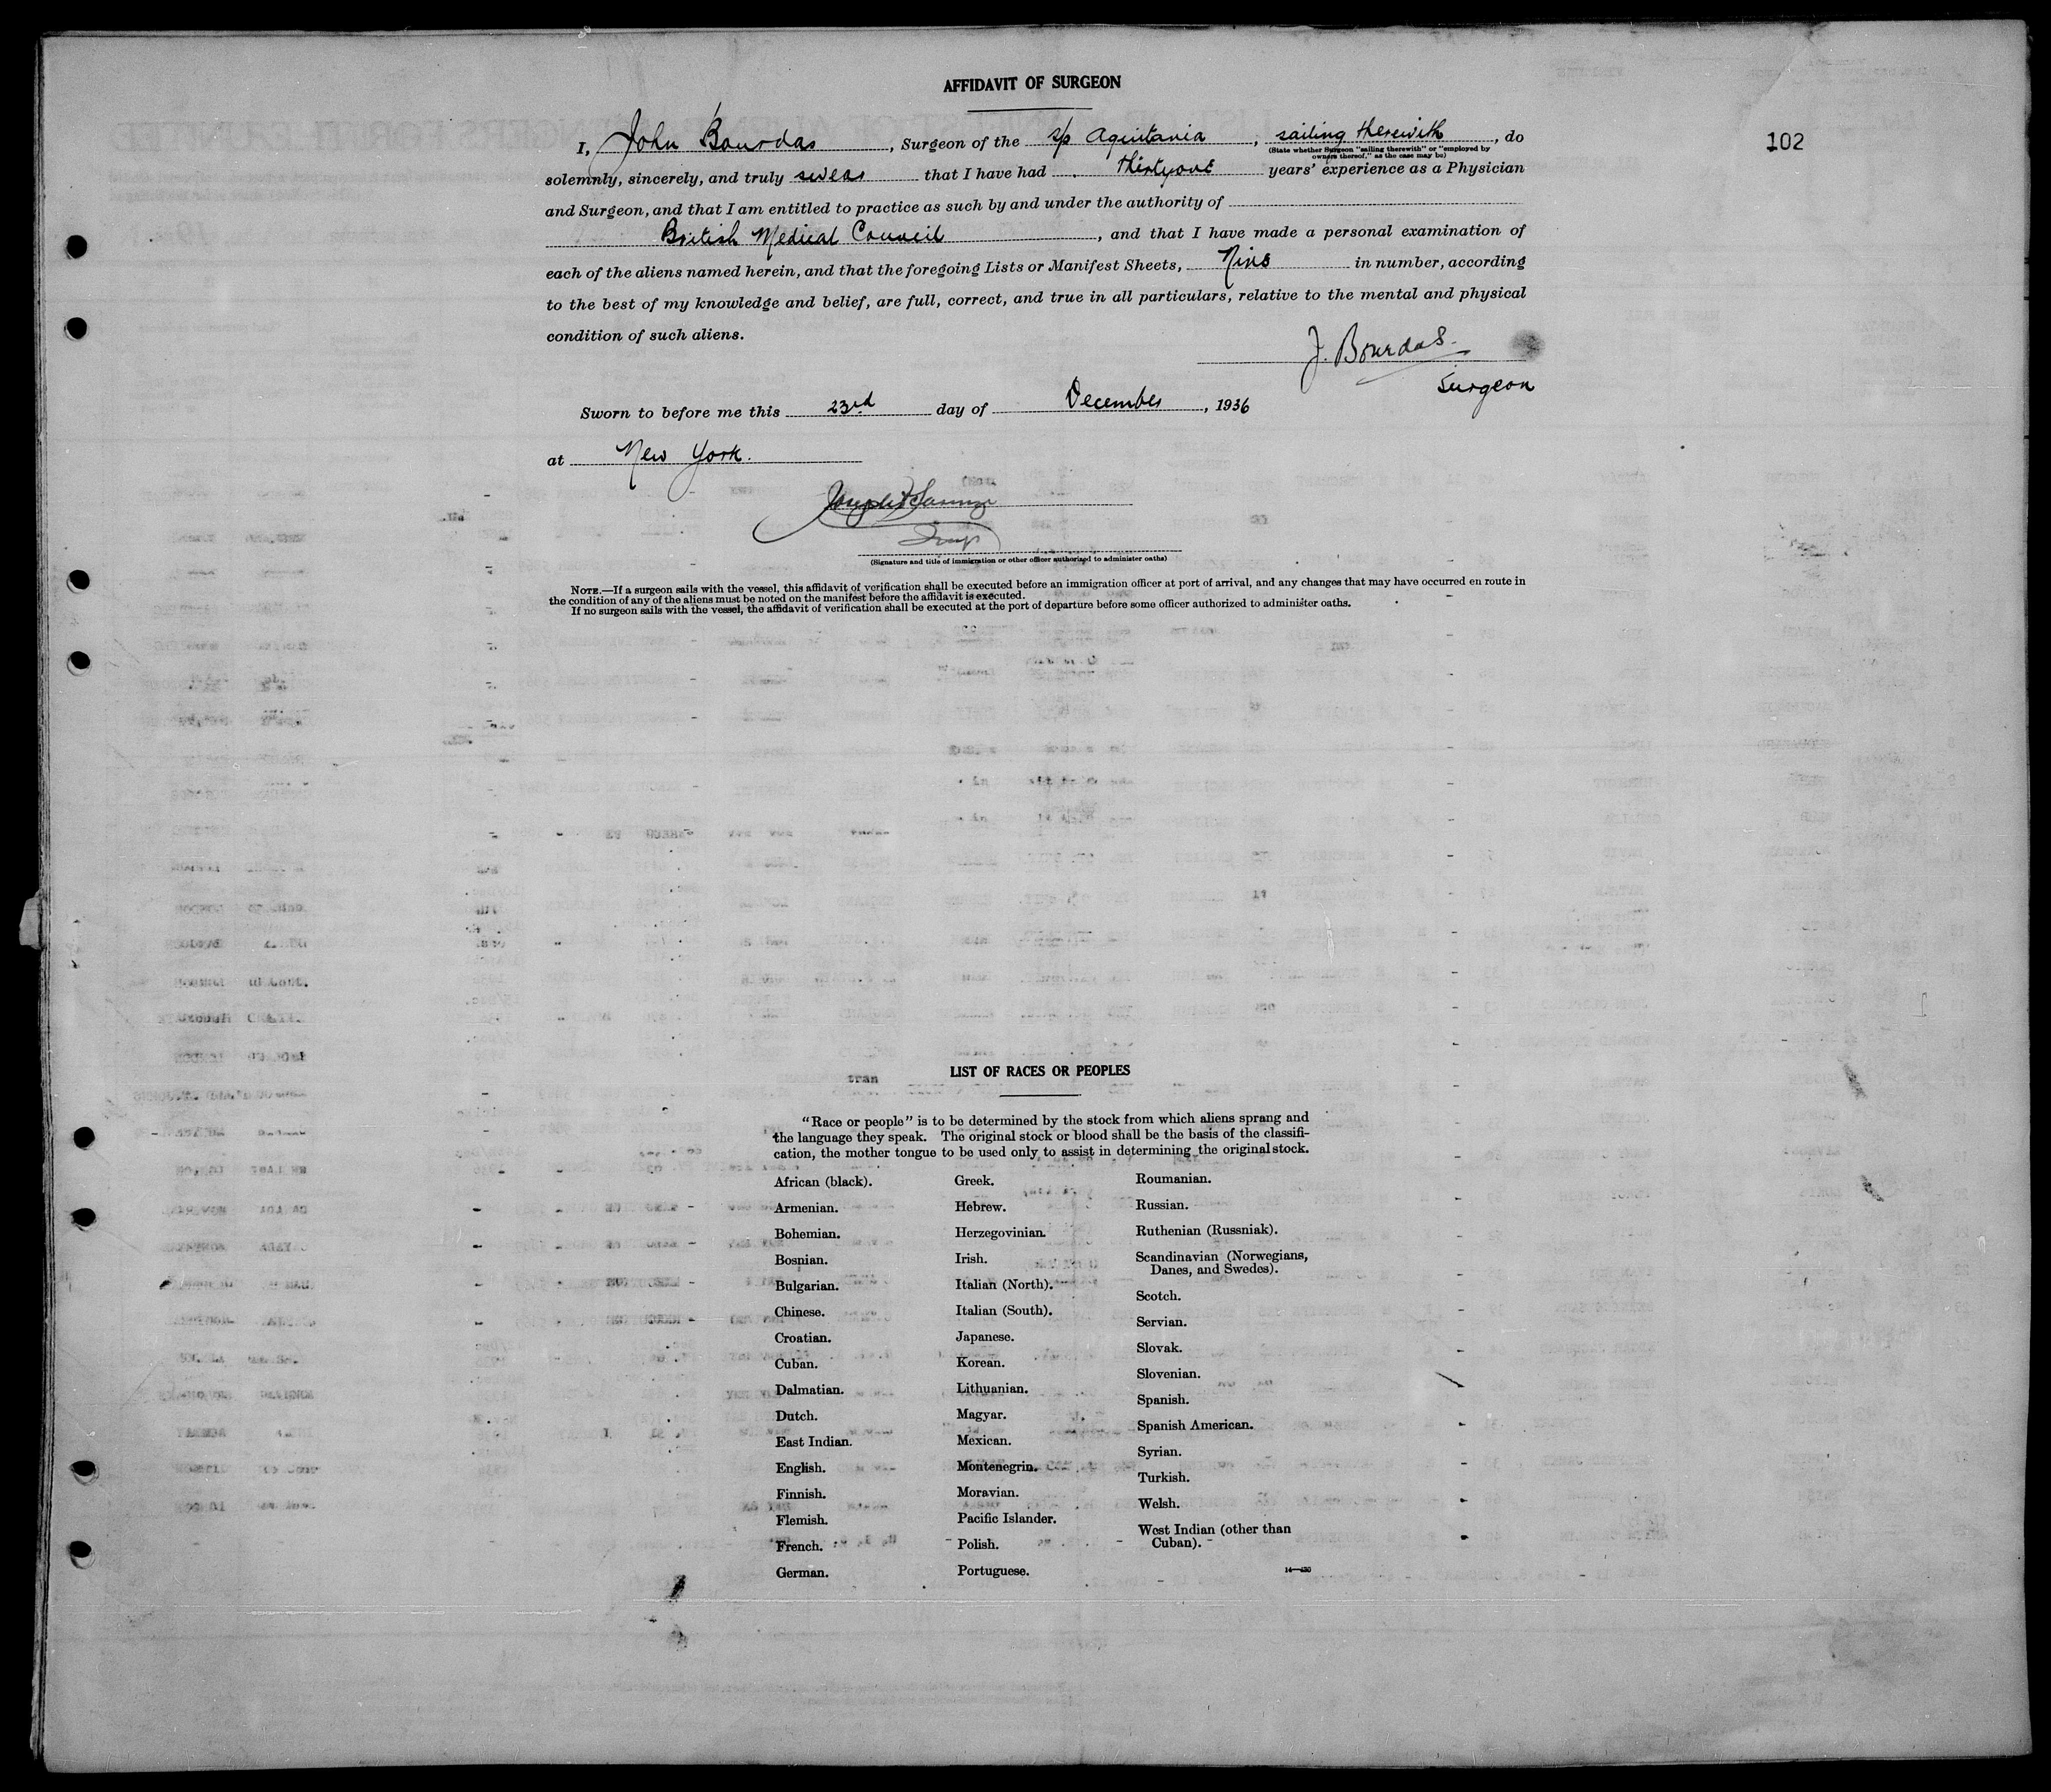 AFFIDAVIT OF SURGEON
102
I, John Bourdas, Surgeon of the s/s Aquitania, sailing therewith, do
(State whether Surgeon "sailing therewith" or "employed by
owners thereof," as the case may be)
solemnly, sincerely, and truly swear that I have had thirtyone years' experience as a Physician
and Surgeon, and that I am entitled to practice as such by and under the authority of
British Medical Council, and that I have made a personal examination of
each of the aliens named herein, and that the foregoing Lists or Manifest Sheets, Nine in number, according
to the best of my knowledge and belief, are full, correct, and true in all particulars, relative to the mental and physical
condition of such aliens.
J. Bourdas.
Surgeon
Sworn to before me this 23rd day of December, 1936
at New York.
(Signature and title of immigration or other officer authorized to administer oaths)
NOTE.—If a surgeon sails with the vessel, this affidavit of verification shall be executed before an immigration officer at port of arrival, and any changes that may have occurred en route in
the condition of any of the aliens must be noted on the manifest before the affidavit is executed.
If no surgeon sails with the vessel, the affidavit of verification shall be executed at the port of departure before some officer authorized to administer oaths.
LIST OF RACES OR PEOPLES
"Race or people" is to be determined by the stock from which aliens sprang and
the language they speak. The original stock or blood shall be the basis of the classifi-
cation, the mother tongue to be used only to assist in determining the original stock.
African (black).
Armenian.
Bohemian.
Bosnian.
Bulgarian.
Chinese.
Croatian.
Cuban.
Dalmatian.
Dutch.
East Indian.
English.
Finnish.
Flemish.
French.
German.
Greek.
Hebrew.
Herzegovinian.
Irish.
Italian (North).
Italian (South).
Japanese.
Korean.
Lithuanian.
Magyar.
Mexican.
Montenegrin.
Moravian.
Pacific Islander.
Polish.
Portuguese.
Roumanian.
Russian.
Ruthenian (Russniak).
Scandinavian (Norwegians,
Danes, and Swedes).
Scotch.
Servian.
Slovak.
Slovenian.
Spanish.
Spanish American.
Syrian.
Turkish.
Welsh.
West Indian (other than
Cuban).
14—430